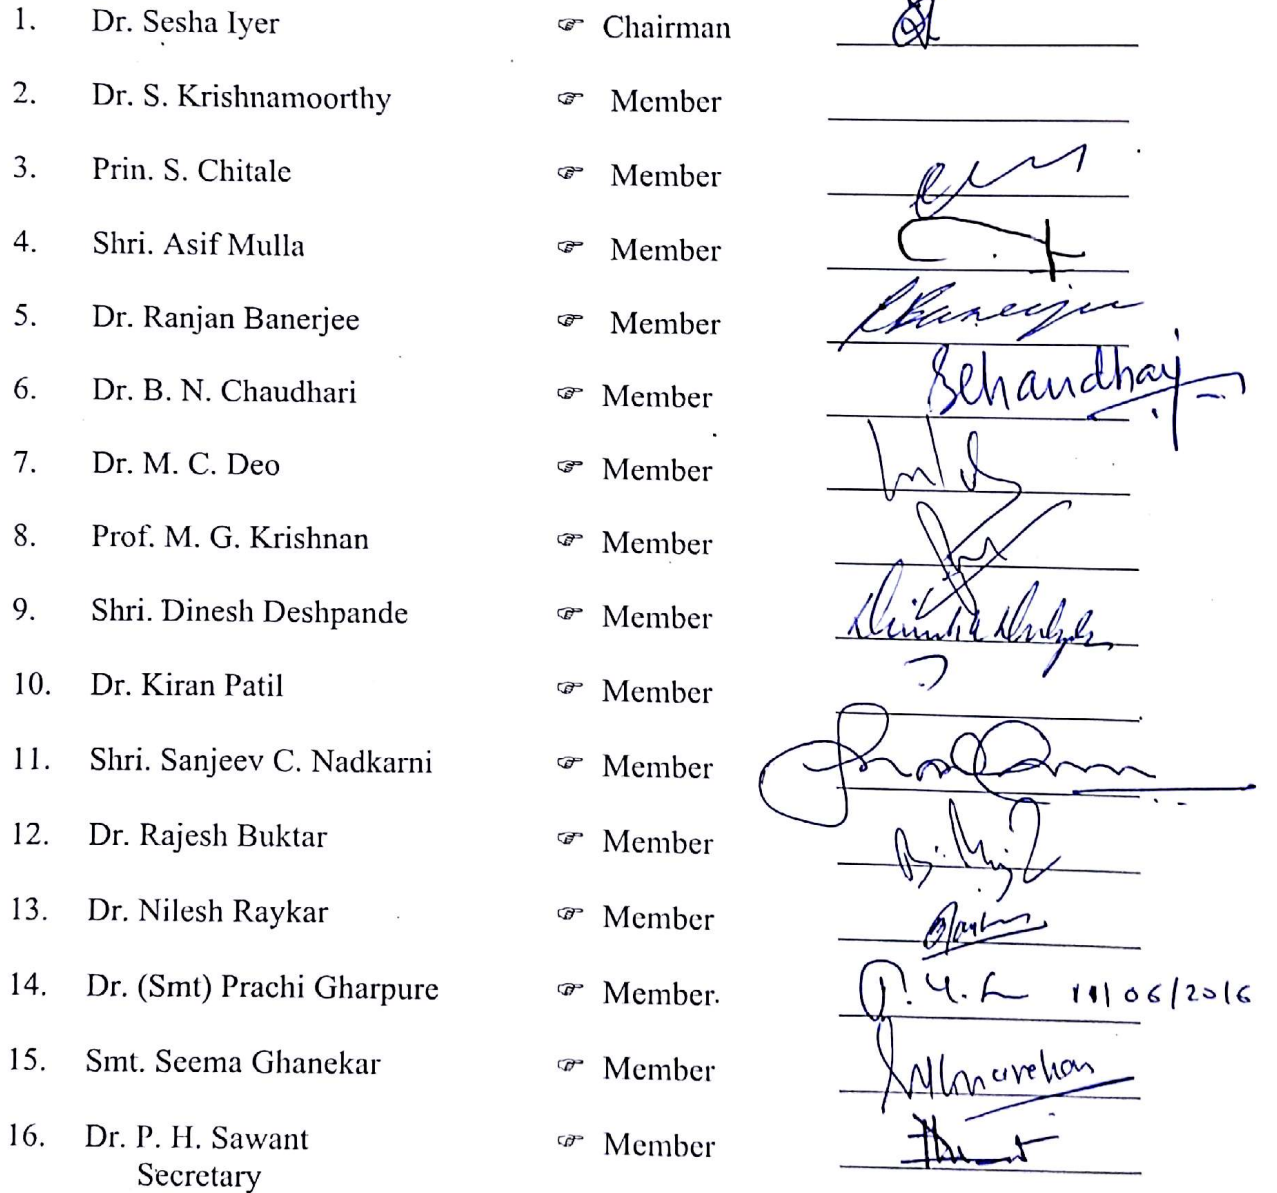 1. Dr. Sesha Iyer ☞ Chairman
2. Dr. S. Krishnamoorthy ☞ Member
3. Prin. S. Chitale ☞ Member
4. Shri. Asif Mulla ☞ Member
5. Dr. Ranjan Banerjee ☞ Member
6. Dr. B. N. Chaudhari ☞ Member
7. Dr. M. C. Deo ☞ Member
8. Prof. M. G. Krishnan ☞ Member
9. Shri. Dinesh Deshpande ☞ Member
10. Dr. Kiran Patil ☞ Member
11. Shri. Sanjeev C. Nadkarni ☞ Member
12. Dr. Rajesh Buktar ☞ Member
13. Dr. Nilesh Raykar ☞ Member
14. Dr. (Smt) Prachi Gharpure ☞ Member. 11/06/2016
15. Smt. Seema Ghanekar ☞ Member
16. Dr. P. H. Sawant ☞ Member
Secretary